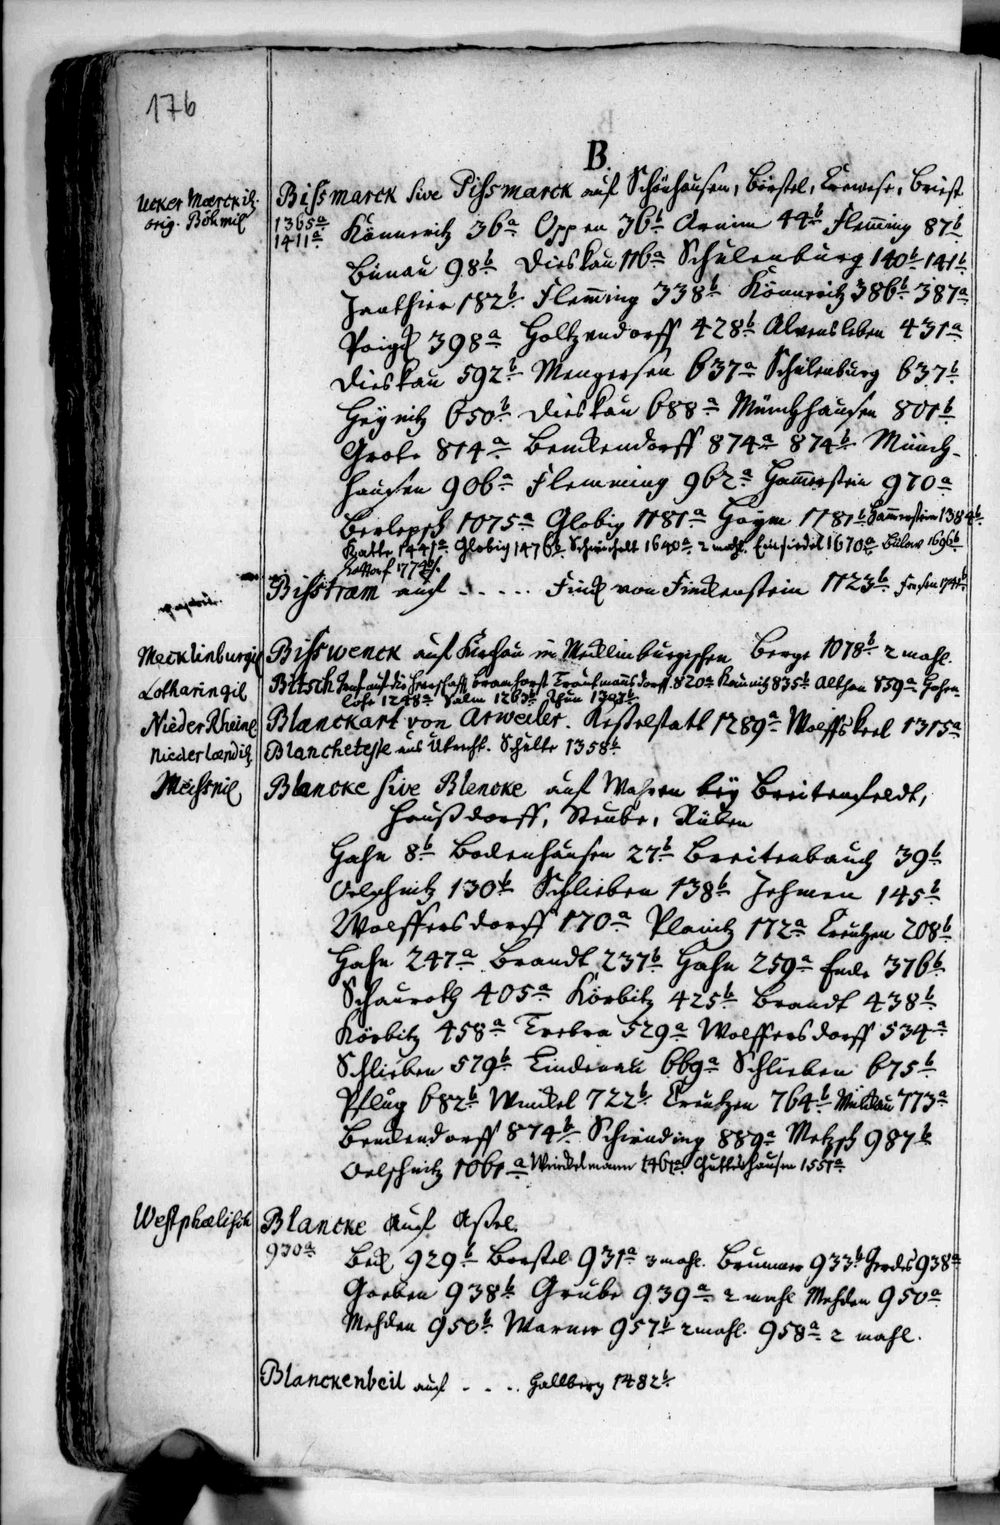 176
B.
Ucker Märckisch
orig. Böhmisch
Bißmarck sive Pißmarck auf Schönhausen, Börstel, Crewese, Briest
1365a
1411a
Könneritz 36a Oppen 36b Arnim 44b Flem̃ing 87b
Bünau 98b Dieskau 116a Schulenburg 140b 141b
Janthier 182b Flem̃ing 338b Könneritz 386b 387a
398a Holtzendorff 428b Alvensleben 431a
Dieskau 592b Mengersen 637a Schulenburg 637b
Heynitz 650b Dieskau 688a Münchhausen 801b
Grote 814a Benckendorff 874a 874b Münch-
hausen 906a Flemming 962a Ham̃erstein 970a
Berlepsch 1075a Globig 1181a Hoym 1181b Ham̃erstein 1384b
Katte 1441a Globig 1476b Schwicheldt 1640a 2 mahl. Einsiedel 1670a Bülow 1696b
1774b
Bißtram auf - . . . . Finck von Finckenstein 1123b Fersen 1741b
Mecklinburgisch
Bißwenck auf Kirchau in Mecklinburgischen Berge 1078b 2 mahl.
Lotharingisch
Bitsch Graf auf die Herrschafft Bramhorst Trautmannsdorff 820a Kaunitz 835b Althan 859a Hohen
lohe 1248a Salm 1263b Thun 1307b
Nieder Rheinisch
Blanckart von Arweiler. Kesselstatt 1289a Wolffskeel 1315a
Niederländisch
Blancheteste aus Utrecht. Schulte 1358b
Meißnisch
Blancke sive Blencke auf Wahren bey Breitenfeldt,
Haußdorff, Steube, Rüben
Hahn 8b Bodenhausen 27b Breitenbauch 39b
Oelschnitz 130b Schlieben 138b Jehmen 145b
Wolffersdorff 170a Plaunitz 172a Creutzen 208b
Hahn 247a Brandt 237b Hahn 259a Ende 376b
Schauroth 405a Körbitz 425b Brandt 438b
Körbitz 458a Trebra 529a Wolffersdorff 534a
Schlieben 579b Lindenau 669a Schlieben 675b
Pflug 682b Winckel 722b Creutzen 764b Miltkau 773a
Benckendorff 874b Schinding 889a Metzsch 987b
Oelschnitz 1061a Winckelmann 1461a Guttershausen 1551a
Westphälisch
Blancke auf Aßel.
930a
Beck 929b Borstel 931a 3 mahl. Brummer 933b Gerdes 938a
Goeben 938b Grube 939a 2 mahl Mehden 950a
Mehden 950b Warner 957b 2 mahl. 958a 2 mahl.
Blanckenbeil auf - . . . Hallberg 1482b